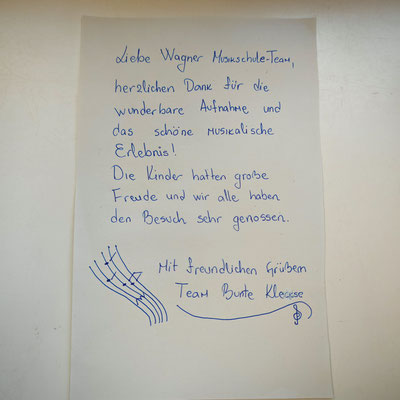 Liebe Wagner Musikschule-Team,
herzlichen Dank für die
wunderbare Aufnahme und
das schöne musikalische
Erlebnis!
Die Kinder hatten große
Freude und wir alle haben
den Besuch sehr genossen.
Mit freundlichen Grüßen
Team Bunte Kleckse